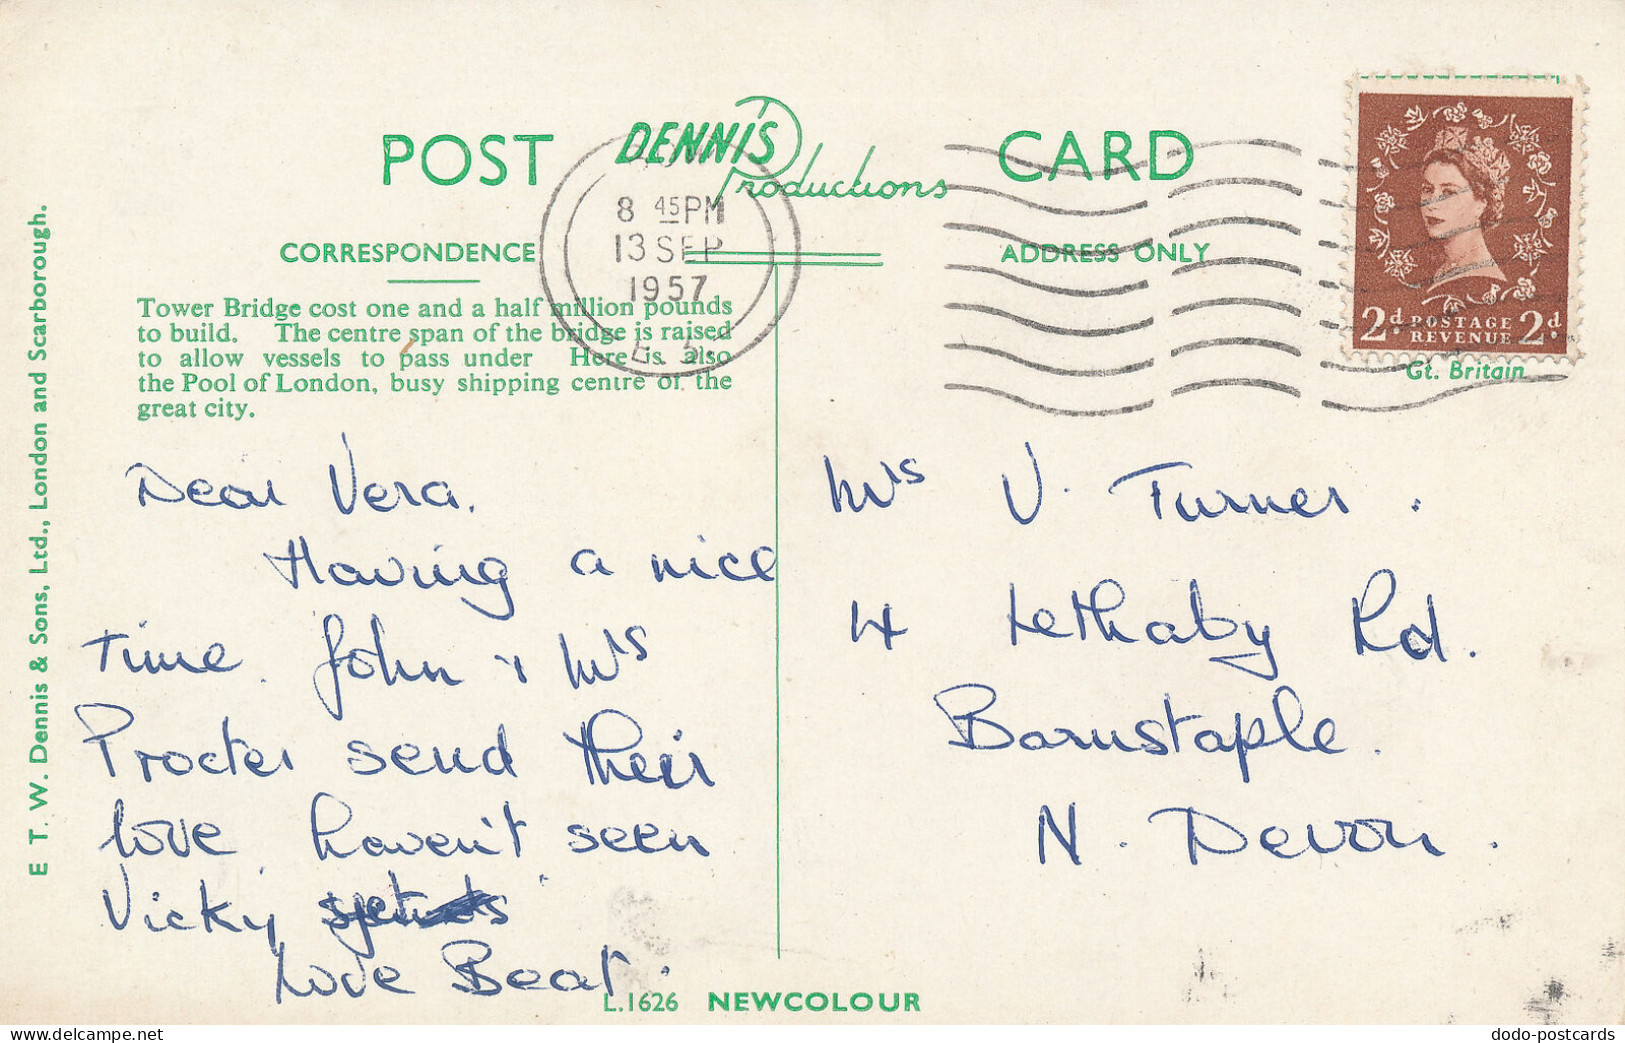 POST DENNIS Productions CARD
8 45PM
13 SEP
1957
CORRESPONDENCE
ADDRESS ONLY
2d POSTAGE 2d.
REVENUE
Gt. Britain
Tower Bridge cost one and a half million pounds
to build. The centre span of the bridge is raised
to allow vessels to pass under Here is also
the Pool of London, busy shipping centre of the
great city.
Dear Vera,
Having a nice
time. John & Mrs
Procter send their
love haven't seen
Vicky
Love Beat.
Mrs V. Turner.
4 Lethaby Rd.
Barnstaple.
N. Devon.
E T. W. Dennis & Sons, Ltd., London and Scarborough.
L.1626 NEWCOLOUR
dodo-postcards